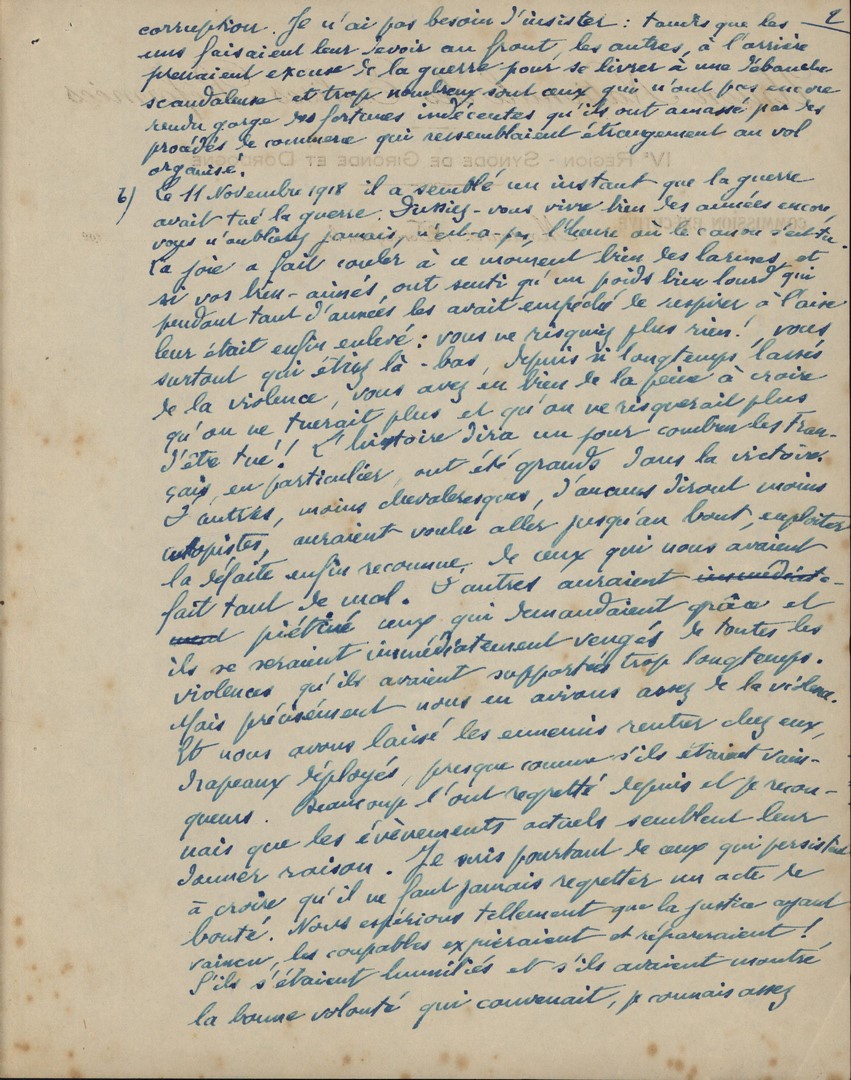 2
corruption. Je n'ai pas besoin d'insister : tandis que les
uns faisaient leur devoir au front, les autres, à l'arrière
prenaient excuse de la guerre pour se livrer à une débauche
scandaleuse et trop nombreux sont ceux qui n'ont pas encore
rendu gorge des fortunes indécentes qu'ils ont amassé par des
procédés de commerce qui ressemblaient étrangement au vol
organisé.
IVe REGION - SYNODE DE GIRONDE ET DORDOGNE
6) Le 11 Novembre 1918 il a semblé un instant que la guerre
avait tué la guerre. Dussiez-vous vivre bien des années encore,
COMMISSION EXECUTIVE
vous n'oublierez jamais, n'est-a-pas, l'heure où le canon s'est tu.
La joie a fait couler à ce moment bien des larmes, et
si vos bien-aimés, ont senti qu'un poids bien lourd qui
pendant tant d'années les avait empêché de respirer à l'aise
leur était enfin enlevé : vous ne risquiez plus rien ! vous
surtout qui étiez là-bas, depuis si longtemps lassés
de la violence, vous avez eu bien de la peine à croire
qu'on ne tuerait plus et qu'on ne risquerait plus
d'être tué ! L'histoire dira un jour combien les Fran-
çais, en particulier, ont été grands dans la victoire.
D'autres, moins chevaleresques, d'aucuns diront moins
utopistes, auraient voulu aller jusqu'au bout, exploiter
la défaite enfin reconnue, de ceux qui nous avaient
fait tant de mal. D'autres auraient immédiate-
ment piétiné ceux qui demandaient grâce et
ils se seraient immédiatement vengés de toutes les
violences qu'ils avaient supportées trop longtemps.
Mais précisément nous en avions assez de la violence.
Et nous avons laissé les ennemis rentrer chez eux,
drapeaux déployés, presque comme s'ils étaient vain-
queurs. Beaucoup l'ont regretté depuis et je recon-
nais que les évènements actuels semblent leur
donner raison. Je suis pourtant de ceux qui persistent
à croire qu'il ne faut jamais regretter un acte de
bonté. Nous espérions tellement que la justice ayant
vaincu, les coupables expieraient et répareraient !
S'ils s'étaient humiliés et s'ils avaient montré
la bonne volonté qui convenait, je connais assez